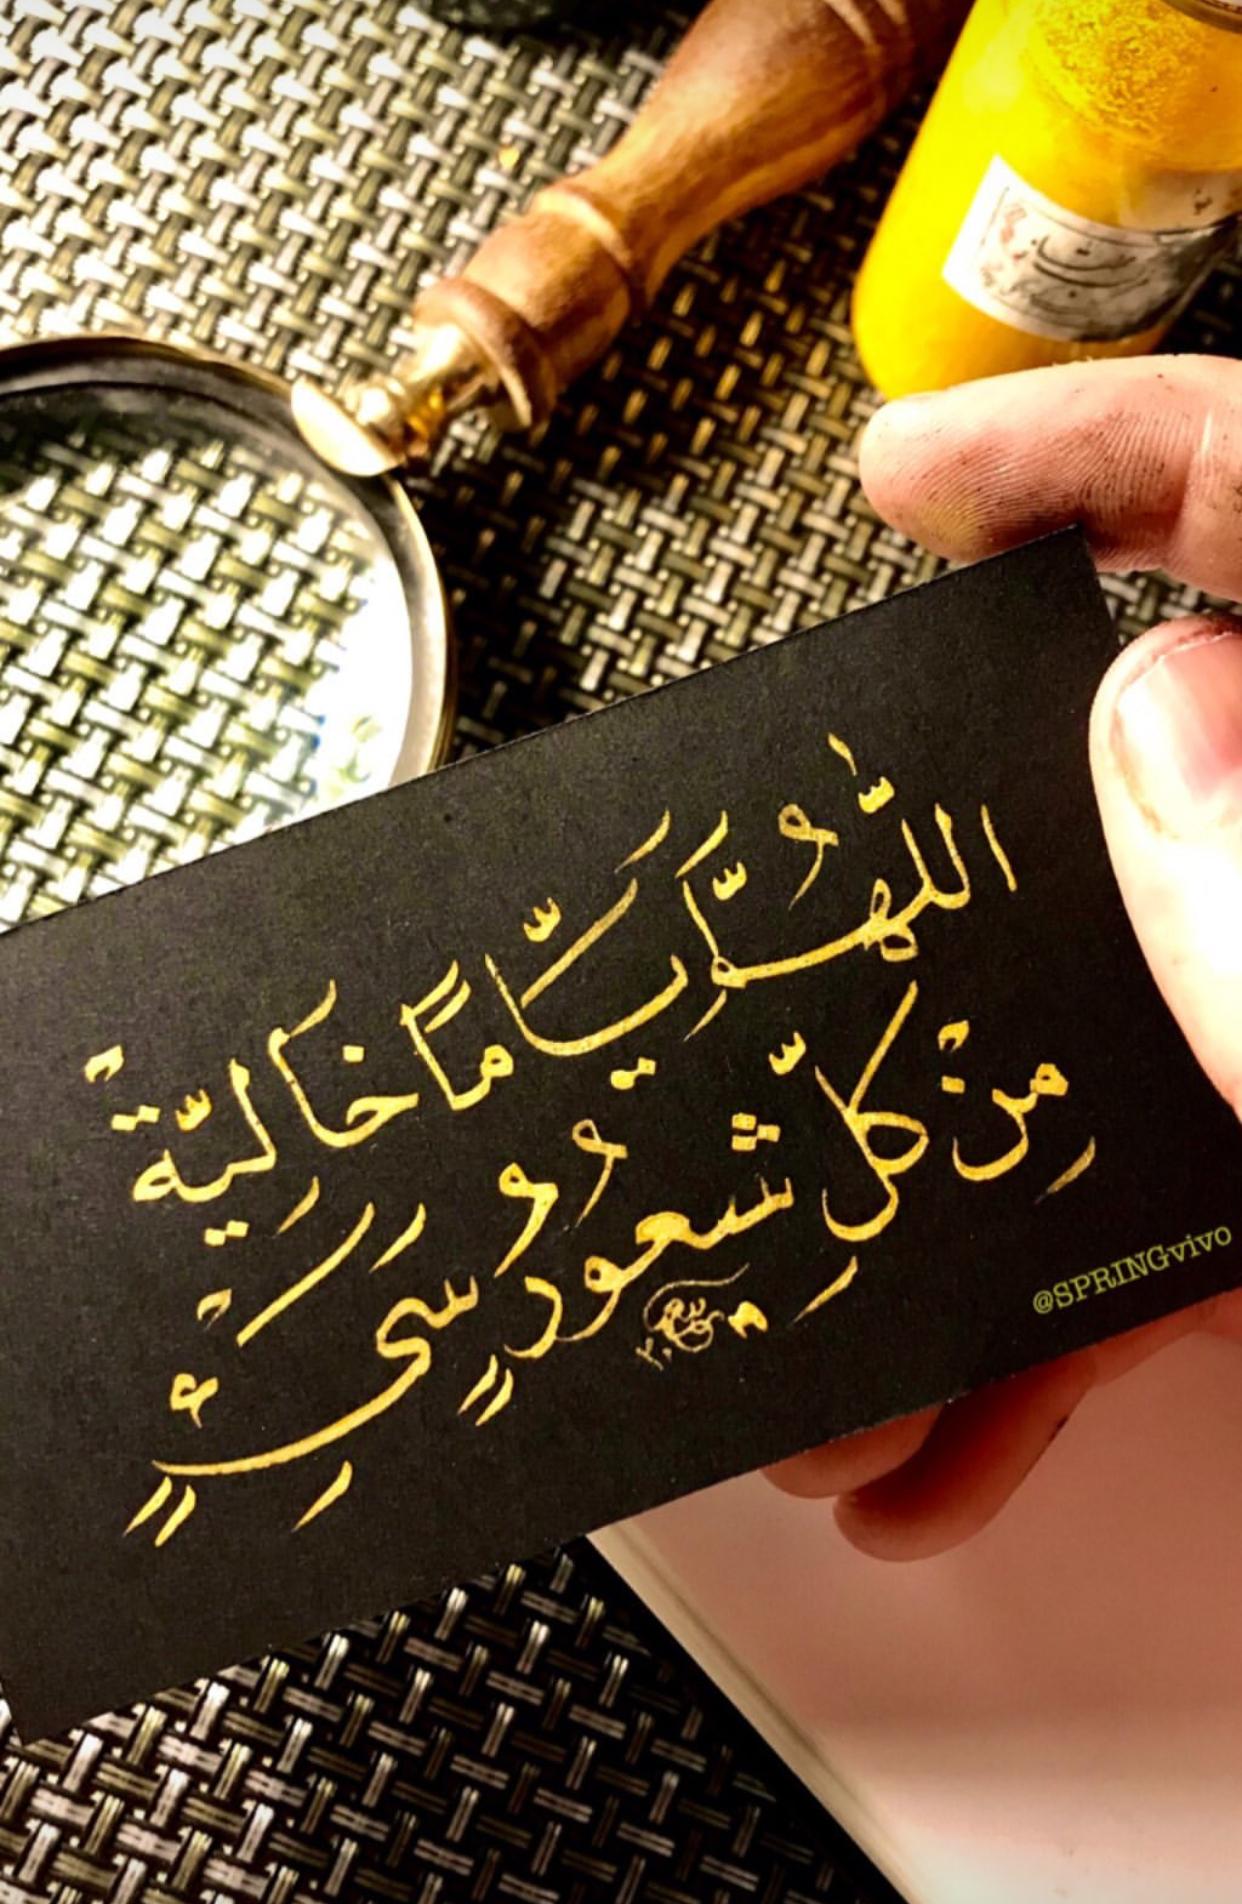 اللّٰهُمَّ أَيَّامًا خَالِيَةً
مِنْ كُلِّ شُعُورٍ سَيِّءٍ
@SPRINGvivo